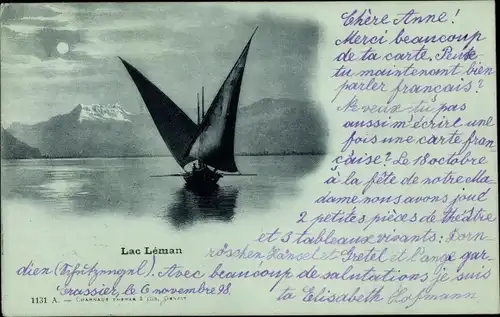 Chère Anne!
Merci beaucoup
de ta carte. Peux-
tu maintenant bien
parler français?
Ne veux tu pas
aussi m'écrire une
fois une carte fran
çaise? Le 18 octobre
à la fête de notre Ma
dame nous avons joué
2 petites pièces de théâtre
et 3 tableaux vivants: Dorn
röschen Hänsel et Gretel et l'ange gar
dien (Schutzengel). Avec beaucoup de salutations je suis
Grassier, le 6 novembre 98. ta Elisabeth Hoffmann.
Lac Léman
1131 A. — Charnaux Frères & Cie, Genève